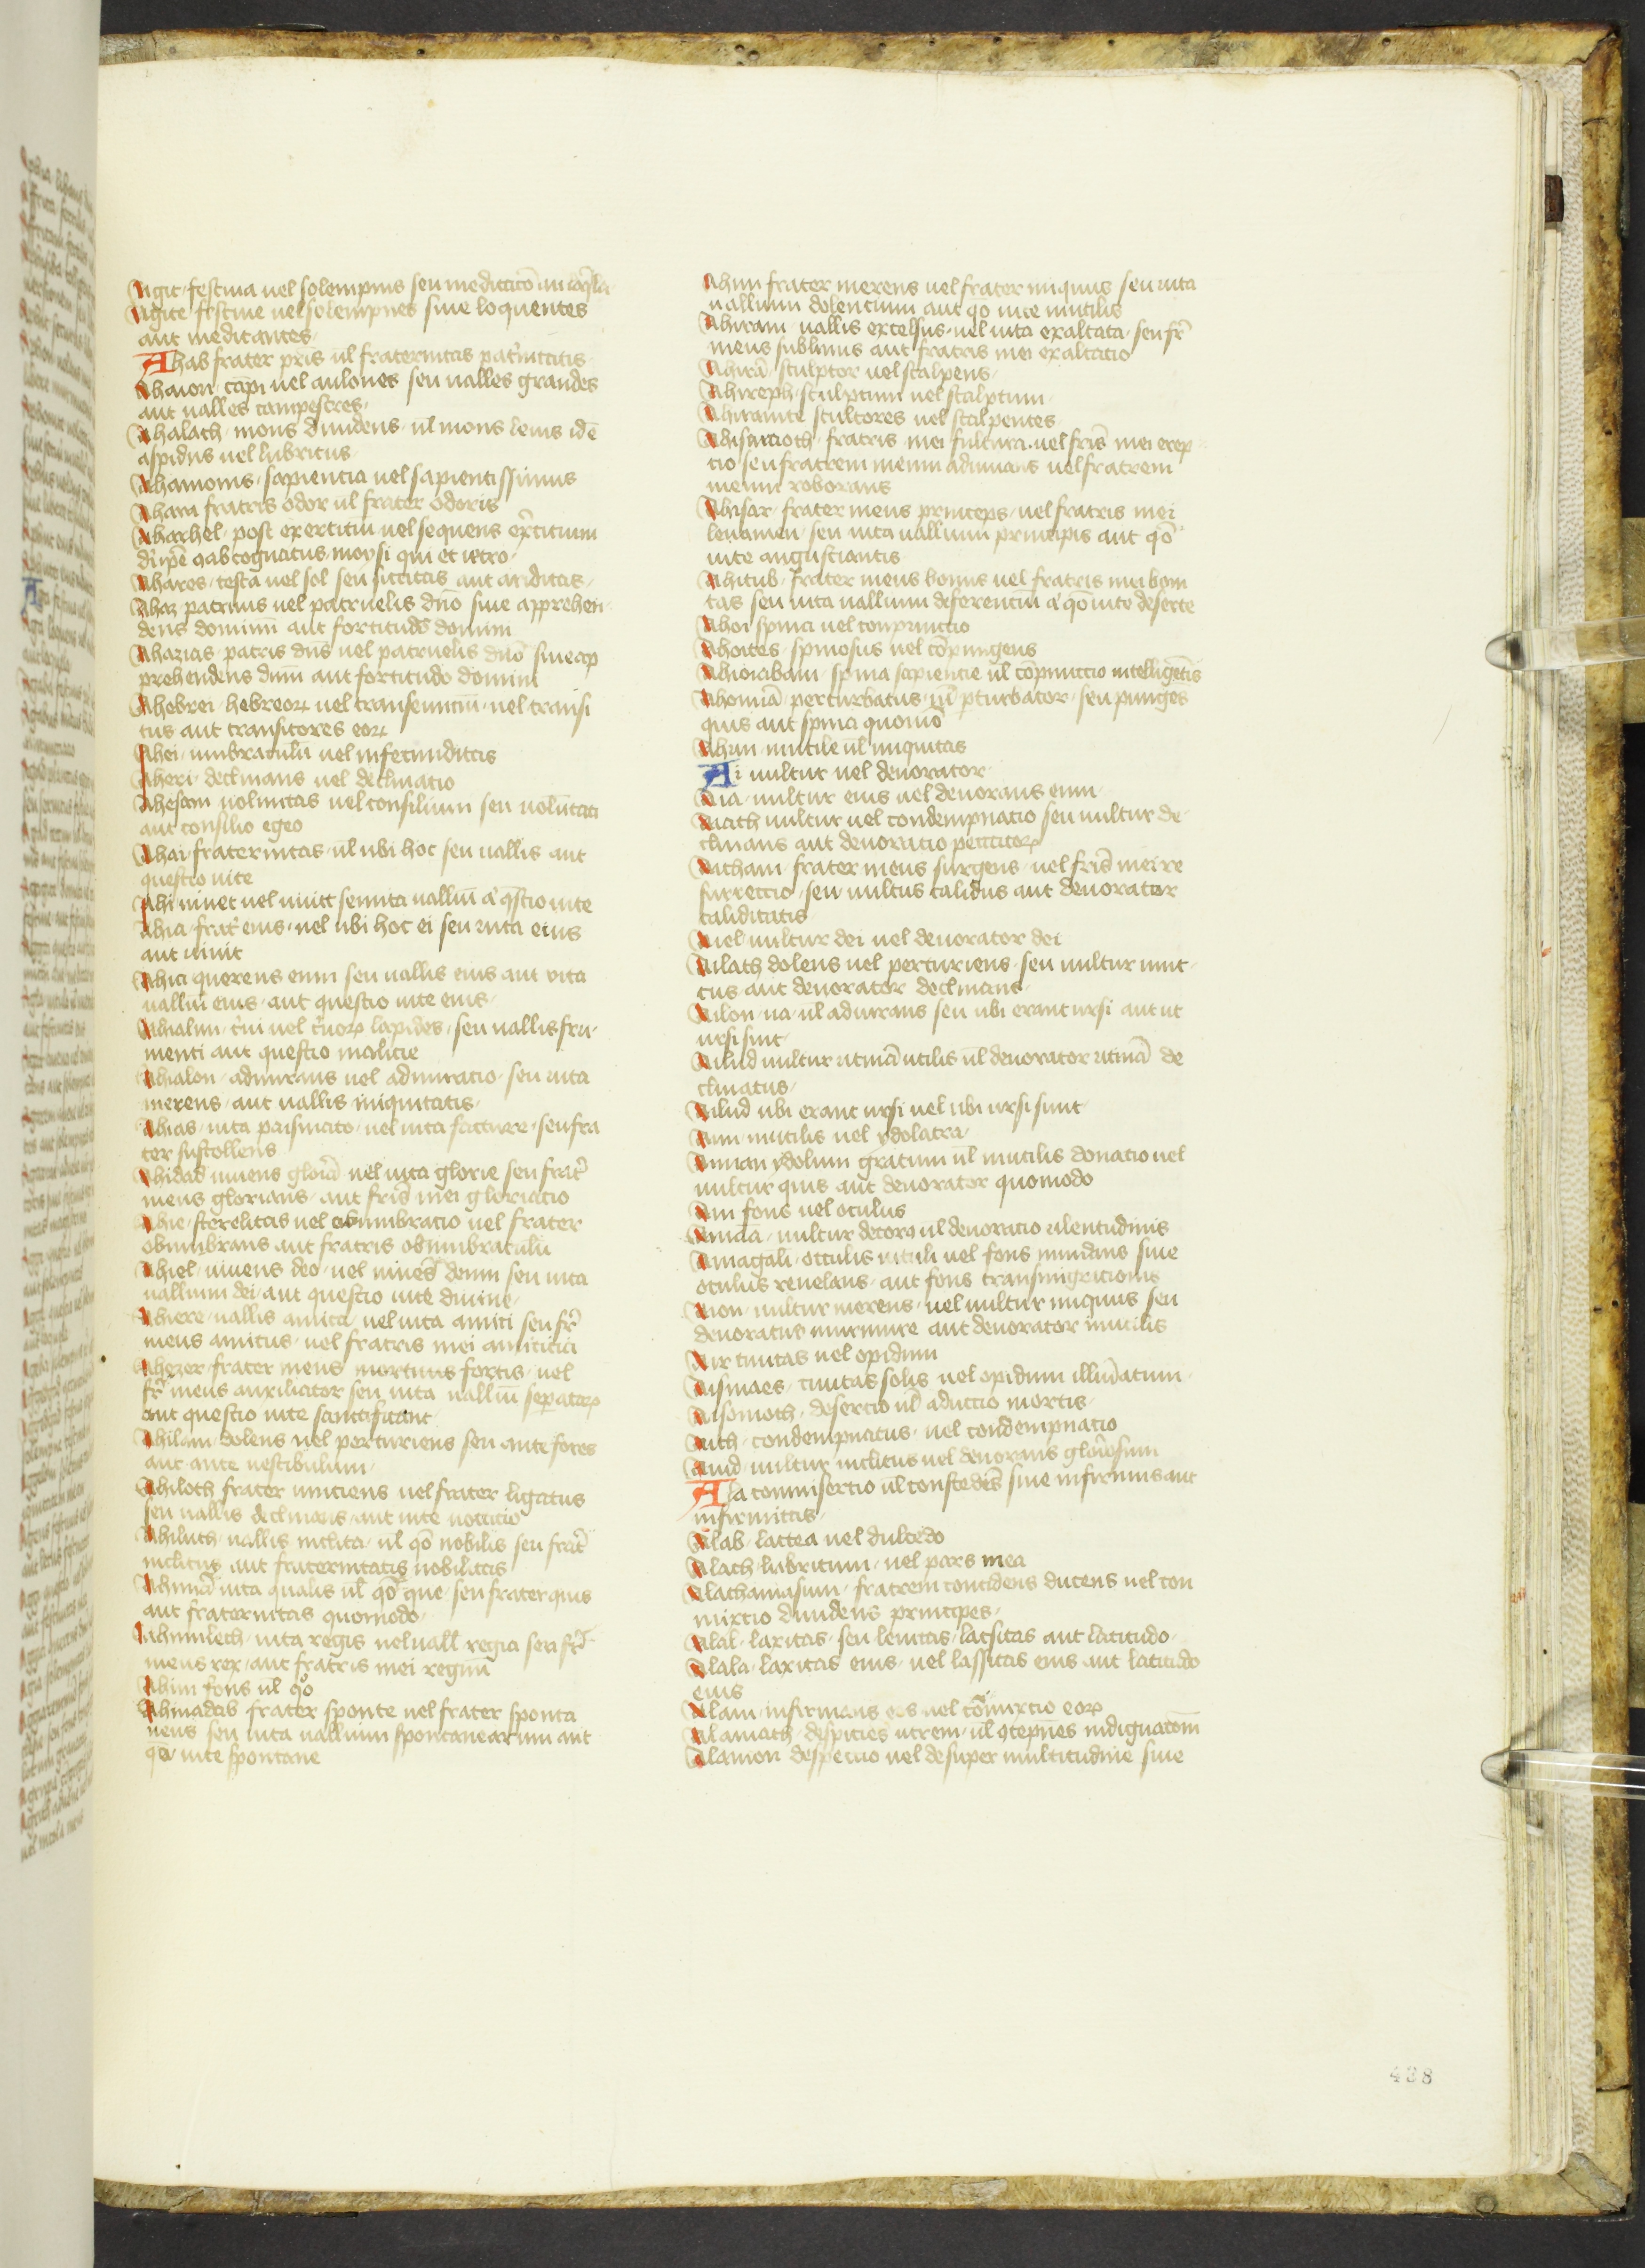 Agit festiua uel solempnis seu meditacō
Agite festiue uel solempnes siue loquentes
aut meditantes
Ahab frater pris ul fraternitas pat'nitatis
Ahaion cāpi uel aulones seu ualles grandes
aut ualles campestres
Ahalach mons diuidens ul mons leuis idē
aspidus uel lubricus
Ahamonis sapiencia uel sapientissimus
Ahara fratris odor ul frater odoris
Aharhel post exercitū uel sequens ex'citum
cognatus moysi qui et ietro
Ahares testa uel sol seu siccitas aut ariditas
Ahaz patruus uel patruelis dnō siue apprehen
dens dominū aut fortitudo domini
Ahazias patris dns uel patruelis dnō siue ap
prehendens dnm̄ aut fortitudo domini
Ahebrei hebreoꝝ uel transeunciū uel transi
tus aut transitores eoꝝ
Ahei umbraculū uel infecunditas
Aheri declinans uel declinatio
Ahesam uoluntas uel consilium seu uolūtati
aut consilio egeo
Ahai fraternitas ul ubi hoc seu uallis aut
questio uite
Ahi uiuet uel uiuit seu uita ualliū a' q̄stio uite
Ahia frat' eius uel ubi hoc ei seu uita eius
aut uiuit
Ahia querens eum seu uallis eius aut vita
ualliū eius aut questio uite eius
Ahialim lapides seu uallis fru
menti aut questio malicie
Ahialon admirans uel admiratio seu uita
merens aut uallis iniquitatis
Ahias uita uel uita facture seu fra
ter sustollens
Ahidad uiuens gloriā uel uita glorie seu frat'
meus glorians aut fris mei gloriatio
Ahie sterelitas uel obumbratio uel frater
obumbrans aut fratris obumbraculū
Ahiel uiuens deo uel uiuēs deum seu uita
uallium dei aut questio uite diuine
Ahiere uallis amica uel uita amici seu fr̄
meus amicus uel fratris mei amicicia
Ahiezer frater meus mortuus fortis uel
fr̄ meus auxiliator seu uita ualliū separatoꝝ
aut questio uite
Ahilam dolens uel parturiens seu ante fores
aut ante uestibulum
Ahiloth frater uinciens uel frater ligatus
seu uallis declinans aut uite
Ahiluth uallis inclita ul qō nobilis seu frat'
inclitus aut fraternitatis nobilitas
Ahimā uita qualis ul qō que seu frater quis
aut fraternitas quomodo
Ahimlech uita regis uel uall regia seu fr̄
meus rex aut fratris mei regnū
Ahim fons ul qō
Ahinadab frater sponte uel frater sponta
neus seu uita uallium spontanearum aut
qō uite spontane
Ahim frater merens uel frater iniquus seu uita
uallium dolencium aut qō uite inutilis
Ahiram uallis excelsus uel uita exaltata seu fr̄
meus sublimis aut fratris mei exaltatio
Ahirā sculptor uel scalpens
Ahireph sculptum uel scalptum
Ahiramite scultores uel scalpentes
Ahisamoth fratris mei fultura uel fris mei erep
tio seu fratrem meum adiuuans uel fratrem
meum roborans
Ahisar frater meus princeps uel fratris mei
leuamen seu uita uallium principis aut qō
uite angustiantis
Ahitub frater meus bonus uel fratris mei boni
tas seu uita uallium deferenciū a' qō uite deserte
Ahoi spina uel conpunctio
Ahoites spinosus uel cōpungens
Ahiorabam spina sapiencie ul cōpunctio intelligētis
Ahomā perturbatus ul pturbator seu punges
quis aut spina quomō
Ahun inutile ul iniquitas
Ai uultur uel deuorator
Aia uultur eius uel deuorans eum
Aiath uultur uel condempnatio seu uultur de
clinans aut deuoratio peccatoꝝ
Aicham frater meus surgens uel fris mei re
surrectio seu uultus calidus aut deuorator
caliditatis
Aiel uultur dei uel deuorator dei
Ailath dolens uel parturiens seu uultur
aut deuorator declinans
Ailon ua ul admirans seu ubi erant ursi aut ut
ursi sint
Ailud uultur utinā utilis ul deuorator utinā de
clinatus
Ailud ubi erant ursi uel ubi ursi sunt
Aim inutilis uel ydolatra
Aiman ydolum gratum ul inutilis donatio uel
uultur quis aut deuorator quomodo
Ain fons uel oculus
Ainaā uultur decorꝯ ul deuoratio ualentudinis
Ainagali occulis uituli uel fons mundans siue
oculus reuelans aut fons transmigrationis
Aion uultur merens uel uultur iniquus seu
deuoratus murmure aut deuorator inutilis
Air ciuitas uel opidum
Aismaes ciuitas solis uel opidum illūinatum
Aisomoth desercio ul aductio mortis
Aith condempnatus uel condempnatio
Aiud uultur inclitus uel deuorans gloriosum
Ala commisercio ul confedēs siue infirmus aut
infirmitas
Alab lactea uel dulcedo
Alach lubricum uel pars mea
Alachamasum fratrem concidens ducens uel con
mixtio diuidens principes
Alal laxitas seu lenitas lassitas aut latitudo
Alala laxitas eius uel lassitas eius aut latitudo
eius
Alam infirmans eos uel cōmixtio eoꝝ
Alamath despicies utrem ul ꝯtepnes indignatōm
Alamon despectio uel desuper multitudine siue
438